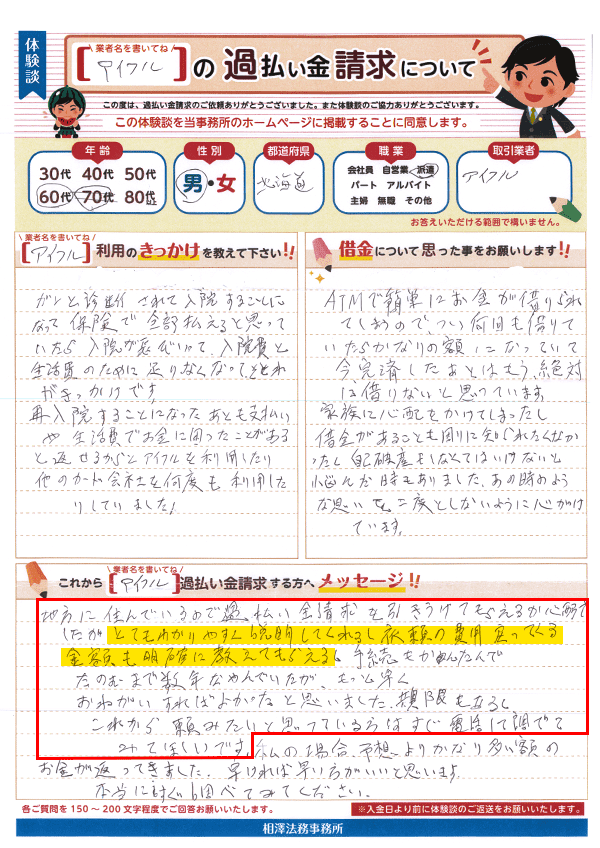 体験談
業者名を書いてね
[アイフル]の過払い金請求について
この度は、過払い金請求のご依頼ありがとうございました。また体験談のご協力ありがとうございます。
この体験談を当事務所のホームページに掲載することに同意します。
年齢
30代 40代 50代
60代 70代 80代以上
性別
男・女
都道府県
北海道
職業
会社員 自営業 派遣
パート アルバイト
主婦 無職 その他
取引業者
アイフル
お答えいただける範囲で構いません。
業者名を書いてね
[アイフル]利用のきっかけを教えて下さい!!
ガンと診断されて入院することに
なって保険で全部払えると思って
いたら入院が長びいて、入院費と
生活費のために足りなくなって、それ
がきっかけです。
再入院することになったあとも支払い
や生活費でお金に困ったことがある
と返せるからとアイフルを利用したり
他のカード会社を何度も利用した
りしていました。
借金について思った事をお願いします!!
ATMで簡単にお金が借りられ
てしまうので、つい何回も借りて
いたらかなりの額になっていて
今完済したあとはもう絶対
は借りないと思っています。
家族に心配をかけてしまったし
借金があることも周りに知られたくなか
ったし自己破産もしなくてはいけないと
悩んだ時もありました。あの時のよう
な思いを二度としないように心がけ
ています。
業者名を書いてね
これから[アイフル]過払い金請求する方へメッセージ!!
地方に住んでいるので過払い金請求を引きうけてもらえるか心配で
したがとてもわかりやすく説明してくれるし依頼の費用、戻ってくる
金額も明確に教えてもらえるし手続もかんたんで
たのむまで数年なやんでいたが、もっと早く
おねがいすればよかったなと思いました。期限もあるし、
これから頼みたいと思っている方はすぐ電話して調べて
みてほしいです。私の場合、予想よりかなり多い額の
お金が返ってきました。早ければ早い方がいいと思います。
本当にすぐ調べてみてください。
各ご質問を150～200文字程度でご回答お願いいたします。
※入金日より前に体験談のご返送をお願いいたします。
相澤法務事務所